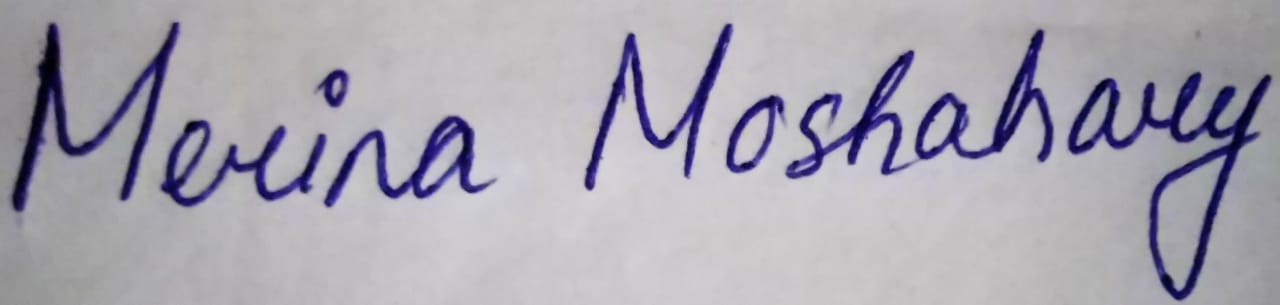 Merina Moshahary